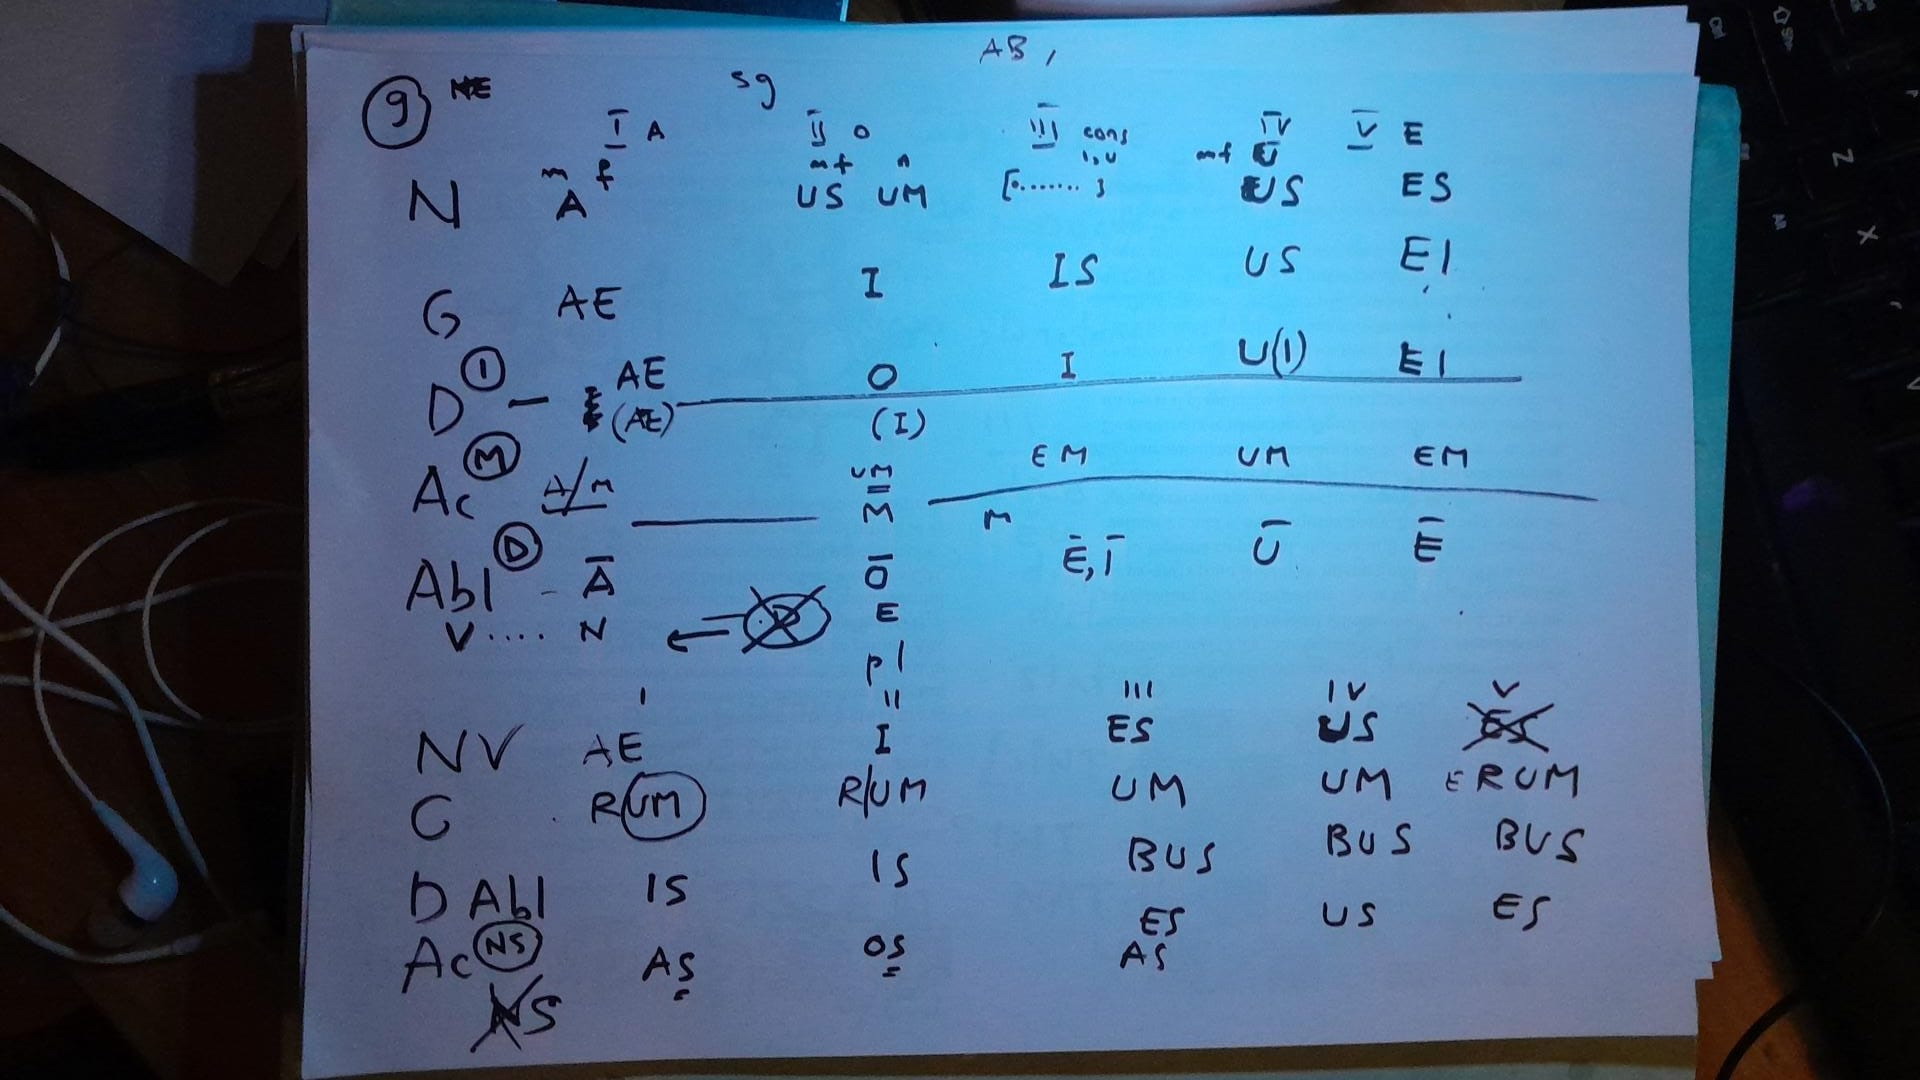 AB,
9 sg
I A II O III cons IV V E
m f mf n I, U mf U
N A US UM [.......] US ES
G AE I IS US EI
D I AE O I U(I) EI
(AE) (I)
Ac M A/M UM EM UM EM
M M
Abl D Ā Ō Ē, Ī Ū Ē
V .... N E
pl
I II III IV V
NV AE I ES US ES
G RUM R/UM UM UM ERUM
D Abl IS IS BUS BUS BUS
Ac NS AS OS ES US ES
AS
NS